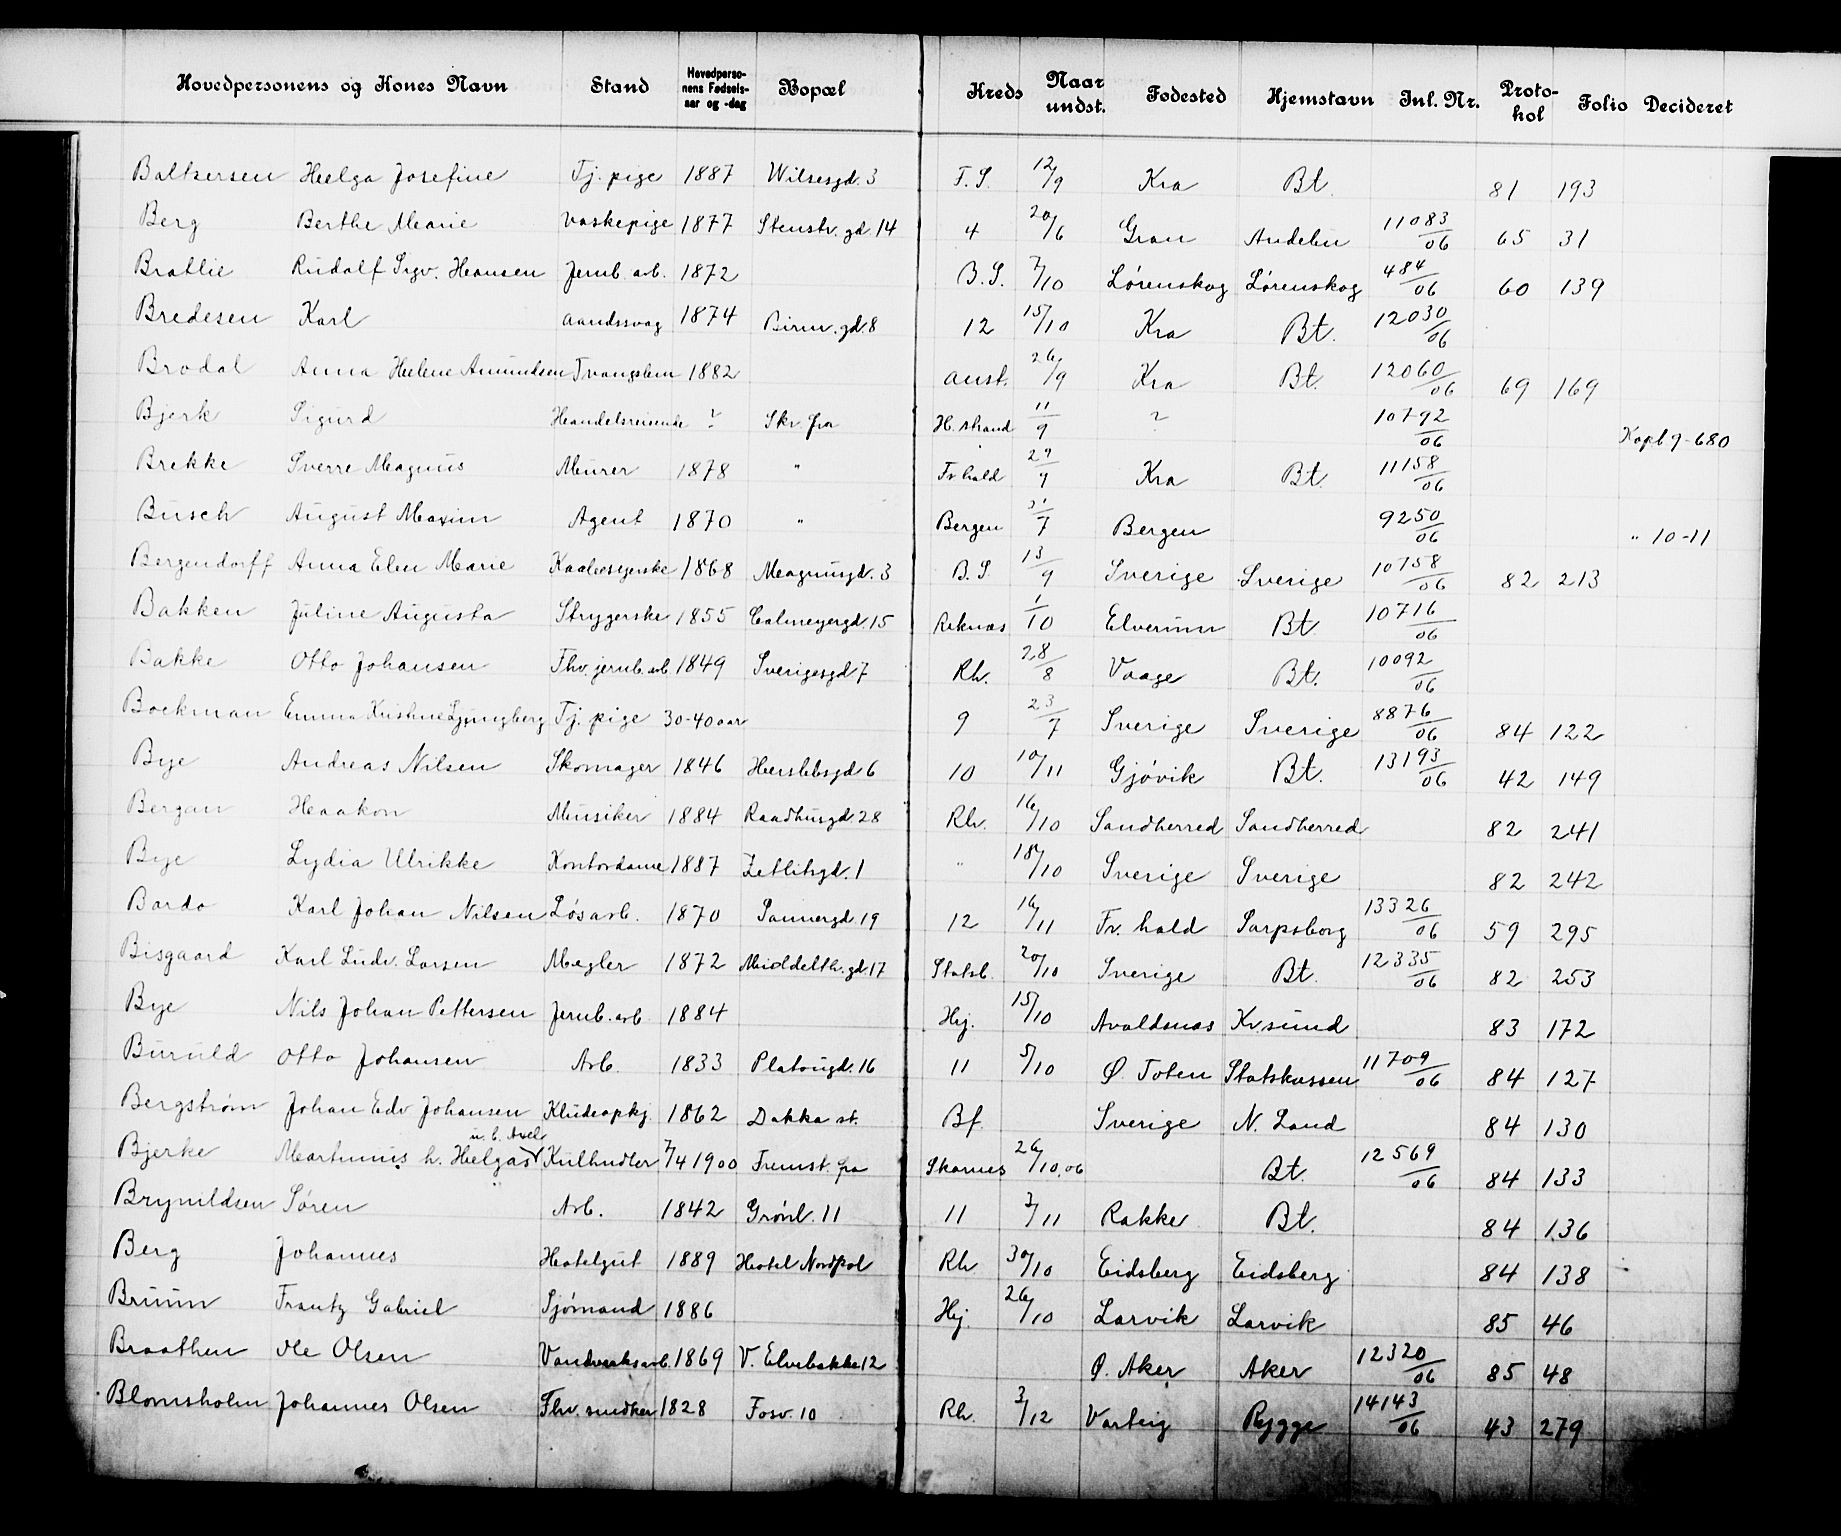 Hovedpersonens og Kones Navn Stand Hovedperso-nens Fødsels-aar og -dag Bopæl Kreds Naar undst. Fødested Hjemstavn Jnl. Nr. Proto-kol Folio Decideret
Baltzersen Helga Josefine Tj. pige 1887 Wilsesgd. 3 F.S. 12/9 Kra Bt. 81 193
Berg Berthe Marie Vaskepige 1877 Stenstr. gd. 14 4 20/6 Gran Andebu 11083/06 65 31
Bratlie Rudolf Sigv. Hansen Jernb. arb. 1872 B.S. 7/10 Lørenskog Lørenskog 484/06 60 139
Bredesen Karl Aandssvag 1874 Birm. gd. 8 12 15/10 Kra Bt. 12030/06
Brodal Anna Helene Amundsen Tvangslem 1882 Anst. 26/9 Kra Bt. 12060/06 69 169
Bjerk Sigurd Handelsreisende ? Skr. fra H. strand 11/9 ? 10792/06 Kopb 9-680
Brekke Sverre Magnus Murer 1878 " Fr hald 29/9 Kra Bt. 11158/06
Busch August Maxim Agent 1870 " Bergen /7 Bergen 9250/06 " 10-11
Bergendorff Anna Elen Marie 1868 Magnusgd. 3 B.S. 13/9 Sverige Sverige 10758/06 82 213
Bakken Juline Augusta Strygerske 1855 Calmeyergd. 15 Reknæs 1/10 Elverum Bt. 10716/06
Bakke Otto Johansen Fhv. jernb. arb 1849 Sverigesgd 7 Rh. 28/8 Vaage Bt. 10092/06
Boekman Emma Kristine Ljungberg Tj. pige 30-40 aar 9 23/7 Sverige Sverige 8876/06 84 122
Bye Andreas Nilsen Skomager 1846 Herslebsgd 6 10 10/11 Gjøvik Bt. 13193/06 42 149
Bergan Haakon Musiker 1884 Raadhusgd. 28 Rh. 16/10 Sandherred Sandherred 82 241
Bye Lydia Ulrikke Kontordame 1887 Zetlitzgd. 1 " 18/10 Sverige Sverige 82 242
Bardo Karl Johan Nilsen Løsarb. 1870 Sannergd. 19 12 16/11 Fr. hald Sarpsborg 13326/06 59 295
Bisgaard Karl Ludv. Larsen Mægler 1872 Middelth. gd. 17 Statsb. 20/10 Sverige Bt. 12335/06 82 253
Bye Nils Johan Pettersen Jernb. arb 1884 Hj. 15/10 Avaldsnæs Kv. sund 83 172
Buruld Otto Johansen Arb. 1833 Platougd. 16 11 5/10 Ø. Toten Statskassen 11709/06 84 127
Bergstrøm Johan Edv Johansen Kludeopkj. 1862 Dakka st. Bf. Sverige N. Land 84 130
Bjerke Martinius h. Helgas u. b. Axel Kulhndler 7/4 1900 Fremst. fra Skarnes 26/10.06 Bt. 12569/06 84 133
Brynildsen Søren Arb. 1842 Grønl. 11 11 2/11 Rakke Bt. 84 136
Berg Johannes Hotelgut 1889 Hotel Nordpol Rh 30/10 Eidsberg Eidsberg 84 138
Bruun Frantz Gabriel Sjømand 1886 Hj. 26/10 Larvik Larvik 85 46
Braathen Ole Olsen Vandværksarb. 1869 V. Elvebakke 12 Ø. Aker Aker 12320/06 85 48
Blomsholm Johannes Olsen Fhv. snedker 1828 Fosv. 10 Rh. 3/12 Varteig Rygge 14143/06 43 279